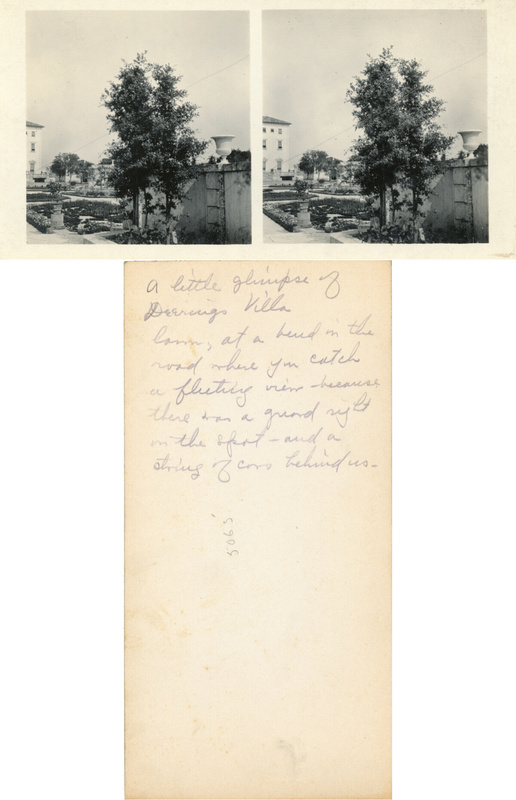 A little glimpse of
Deerings Villa
lawn, at a bend in the
road where you catch
a fleeting view - because
there was a guard right
on the spot - and a
string of cars behind us -
5065